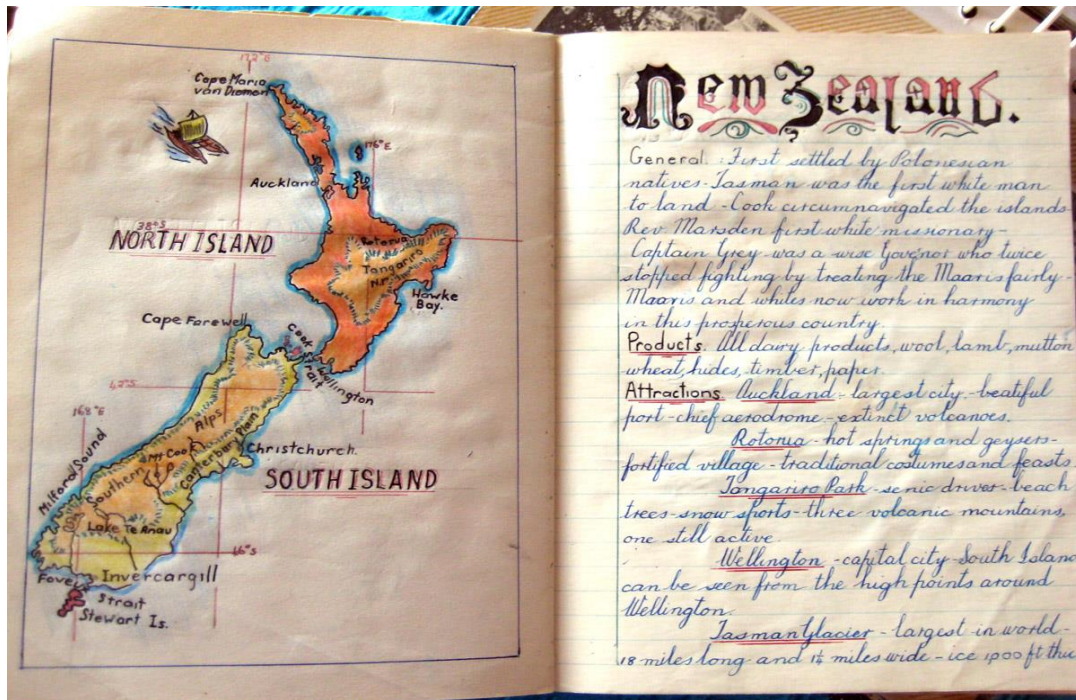 172°E
Cape Maria
van Diemen
176°E
Auckland
38°S
NORTH ISLAND
Rotorua
Tangariro
N.P.
Hawke
Bay.
Cape Farewell
Cook
Strait
Wellington
42°S
168°E
Alps
Mt Cook
Southern
Canterbury Plain
Christchurch
Milford Sound
SOUTH ISLAND
Lake Te Anau
46°S
Invercargill
Fove
Strait
Stewart Is.
New Zealand.
General : First settled by Polonesian
natives - Tasman was the first white man
to land - Cook circumnavigated the islands
Rev Marsden first white missionary -
Captain Grey - was a wise Gove'nor who twice
stopped fighting by treating the Maaris fairly -
Maaris and whites now work in harmony
in this prosperous country.
Products. All dairy products, wool, lamb, mutton
wheat, hides, timber, paper.
Attractions Auckland - largest city - beatiful
port - chief aerodrome - extinct volcanoes.
Rotorua - hot springs and geysers -
fortified village - traditional costumes and feasts.
Tongariro Park - senic driver - beach
trees - snow sports - three volcanic mountains,
one still active.
Wellington - capital city - South Island
can be seen from the high points around
Wellington.
Tasman Glacier - largest in world -
18 miles long and 1¼ miles wide - ice 1,000 ft thic